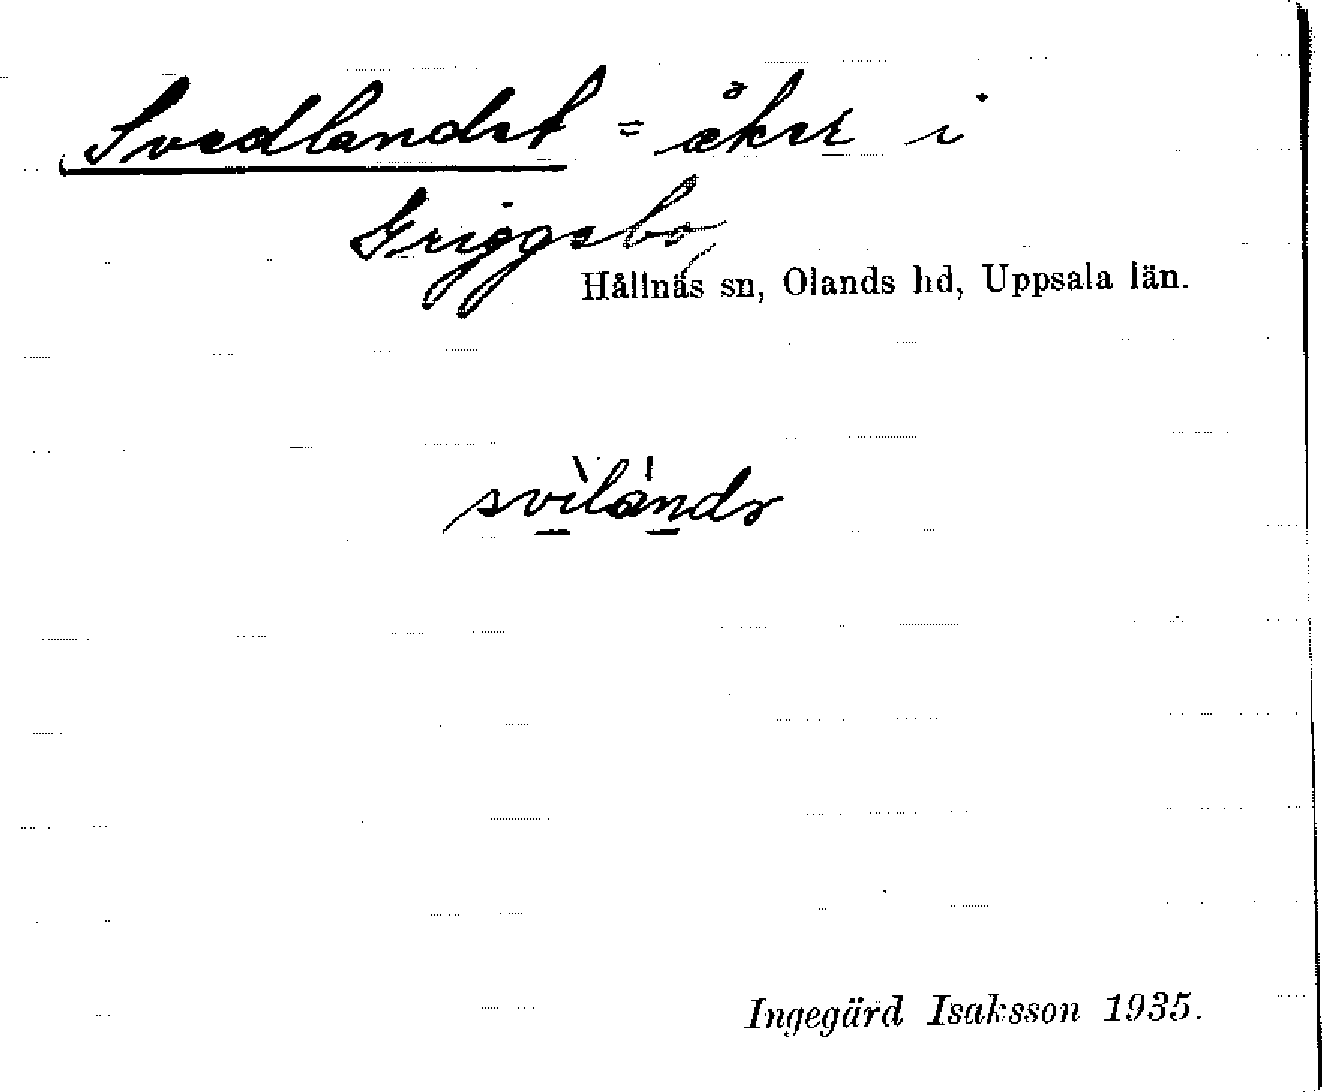 Svedlandet = åker i
Griggebo,
Hållnäs sn, Olands hd, Uppsala län.
svìla̍ndə
Ingegärd Isaksson 1935.